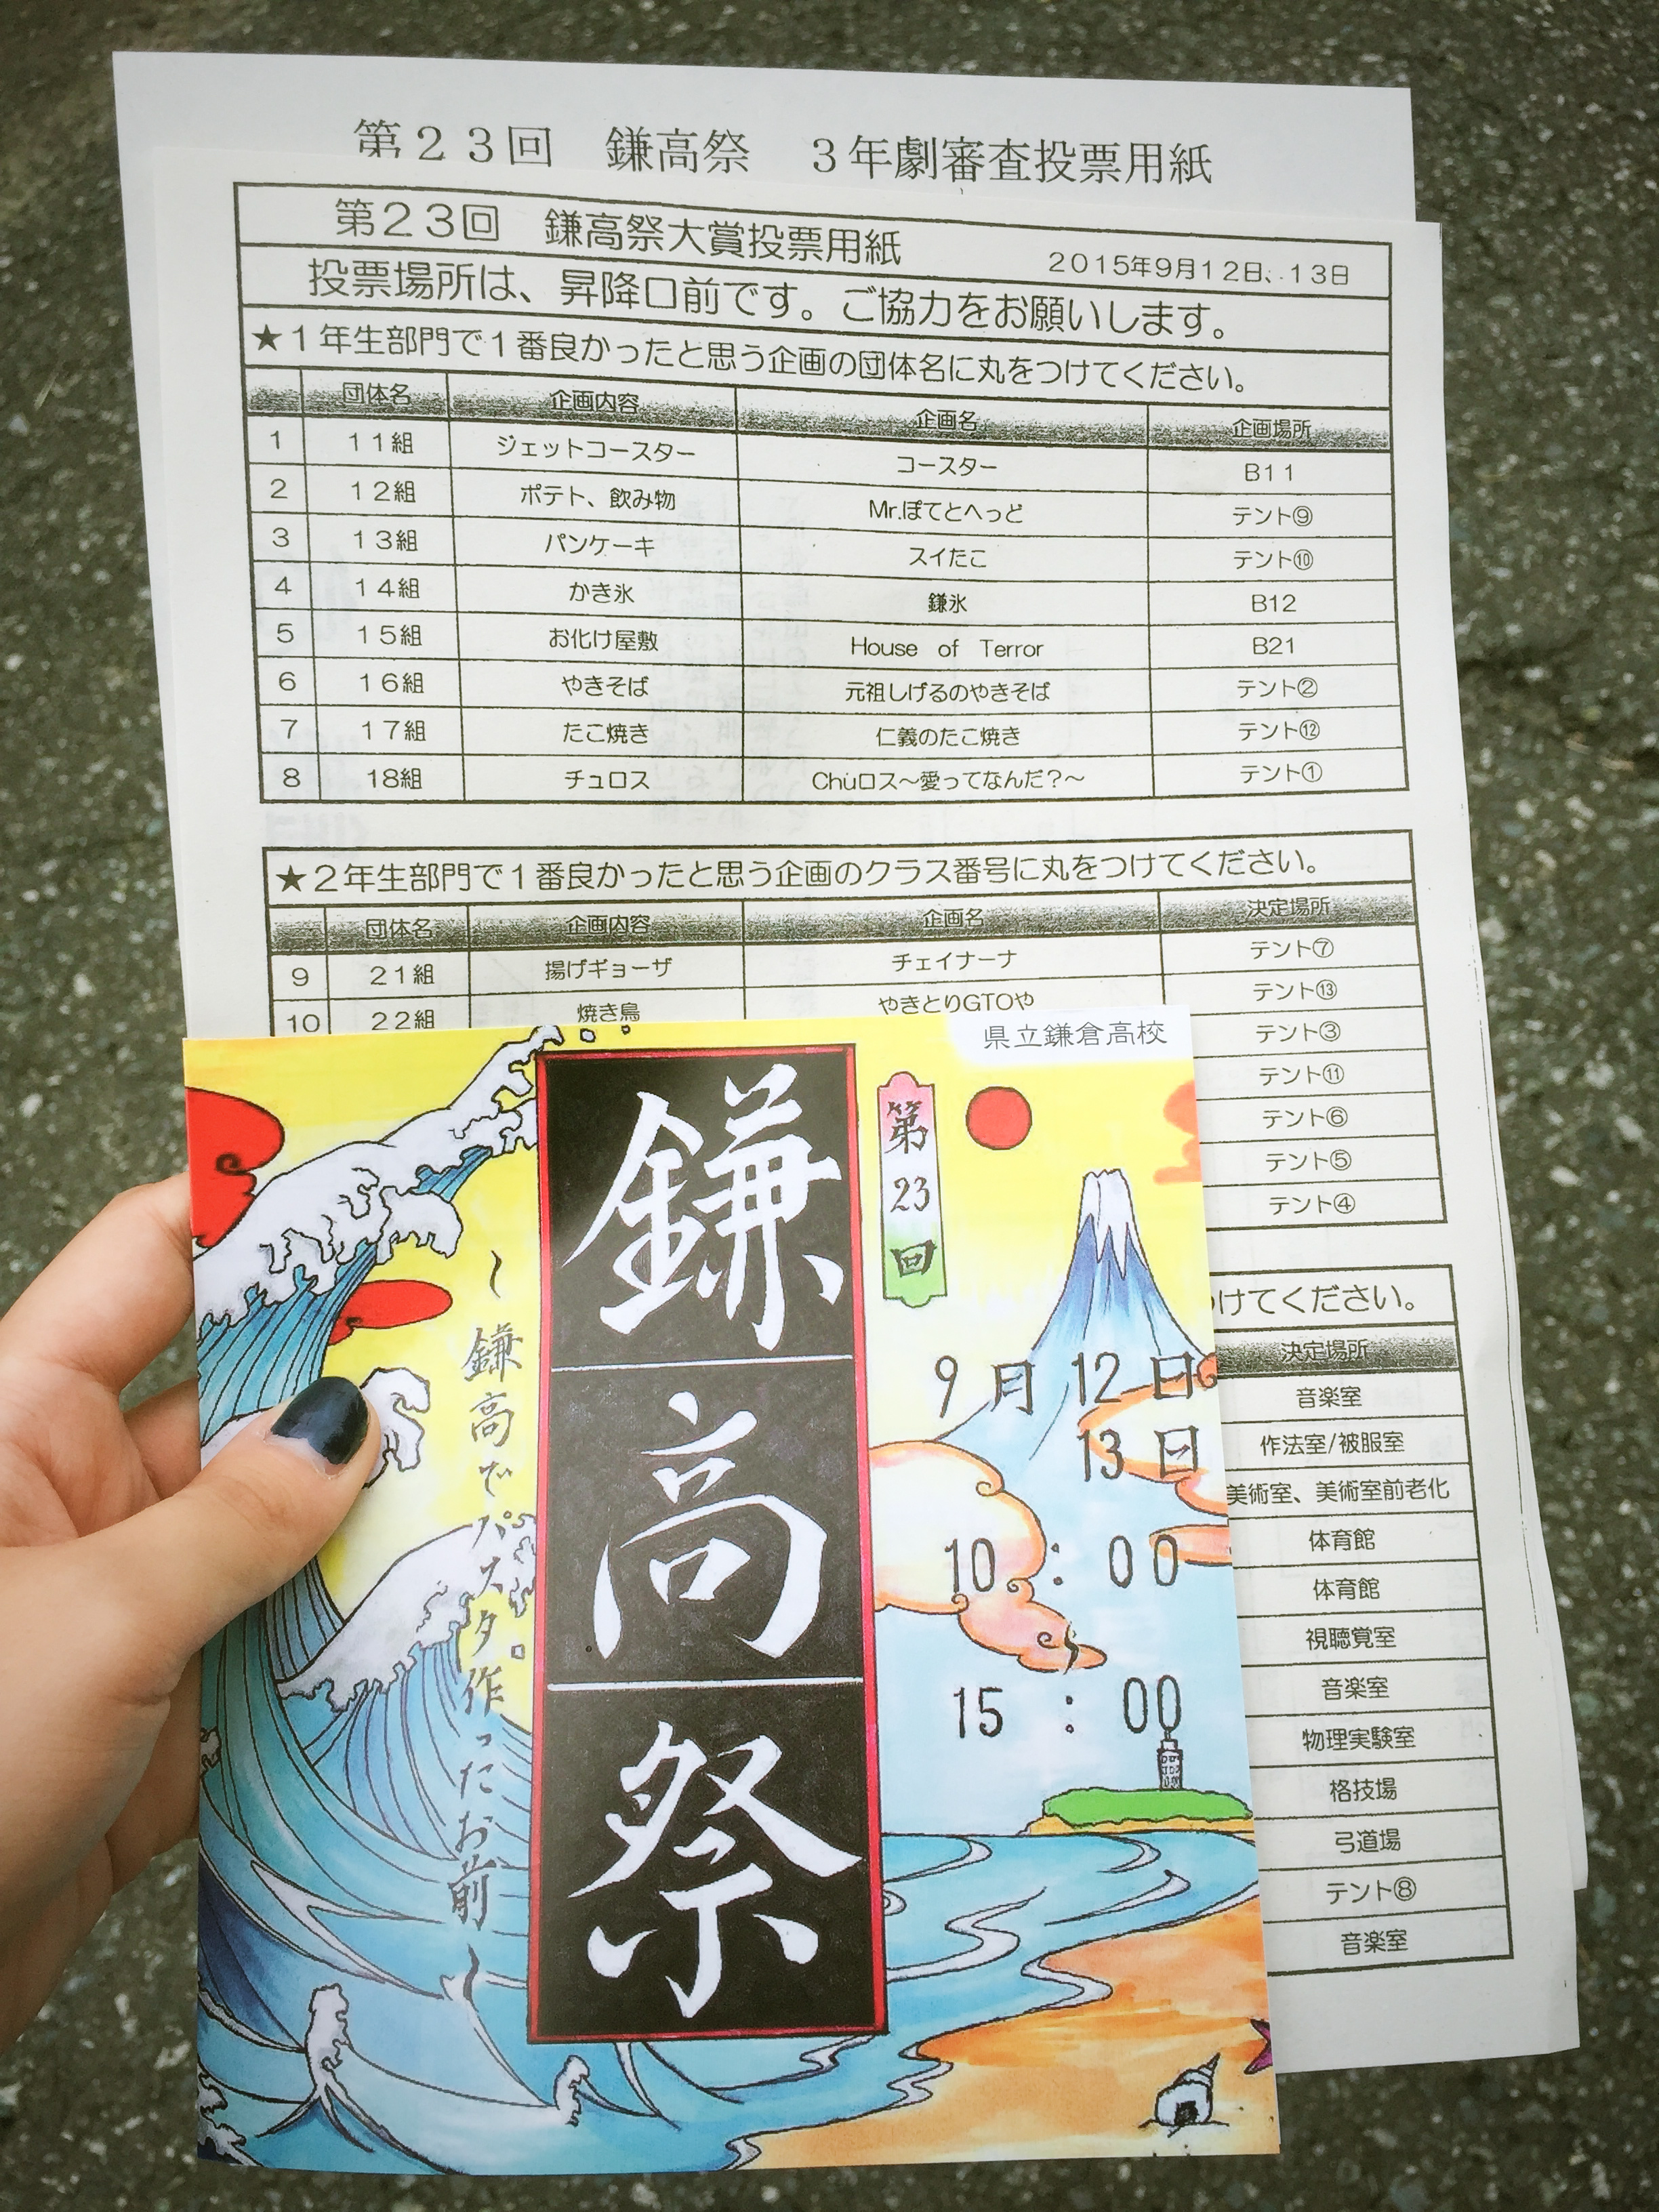 第２３回　鎌高祭　３年劇審査投票用紙
第２３回　鎌高祭大賞投票用紙　２０１５年９月１２日、１３日
投票場所は、昇降口前です。ご協力をお願いします。
★１年生部門で１番良かったと思う企画の団体名に丸をつけてください。
団体名 企画内容 企画名 企画場所
1 １１組 ジェットコースター コースター B１１
2 １２組 ポテト、飲み物 Mr.ぽてとへっど テント⑨
3 １３組 パンケーキ スイたこ テント⑩
4 １４組 かき氷 鎌氷 B12
5 １５組 お化け屋敷 House of Terror B21
6 １６組 やきそば 元祖しげるのやきそば テント②
7 １７組 たこ焼き 仁義のたこ焼き テント⑫
8 18組 チュロス Chuロス～愛ってなんだ？～ テント①
★２年生部門で１番良かったと思う企画のクラス番号に丸をつけてください。
団体名 企画内容 企画名 決定場所
9 ２１組 揚げギョーザ チェイナーナ テント⑦
10 ２２組 焼き鳥 やきとりGTOや テント⑬
テント③
テント⑪
テント⑥
テント⑤
テント④
つけてください。
決定場所
音楽室
作法室/被服室
美術室、美術室前老化
体育館
体育館
視聴覚室
音楽室
物理実験室
格技場
弓道場
テント⑧
音楽室
県立鎌倉高校
第23回
鎌高祭
～鎌高でパスタ作ったお前～
9月12日
13日
10：00
～
15：00